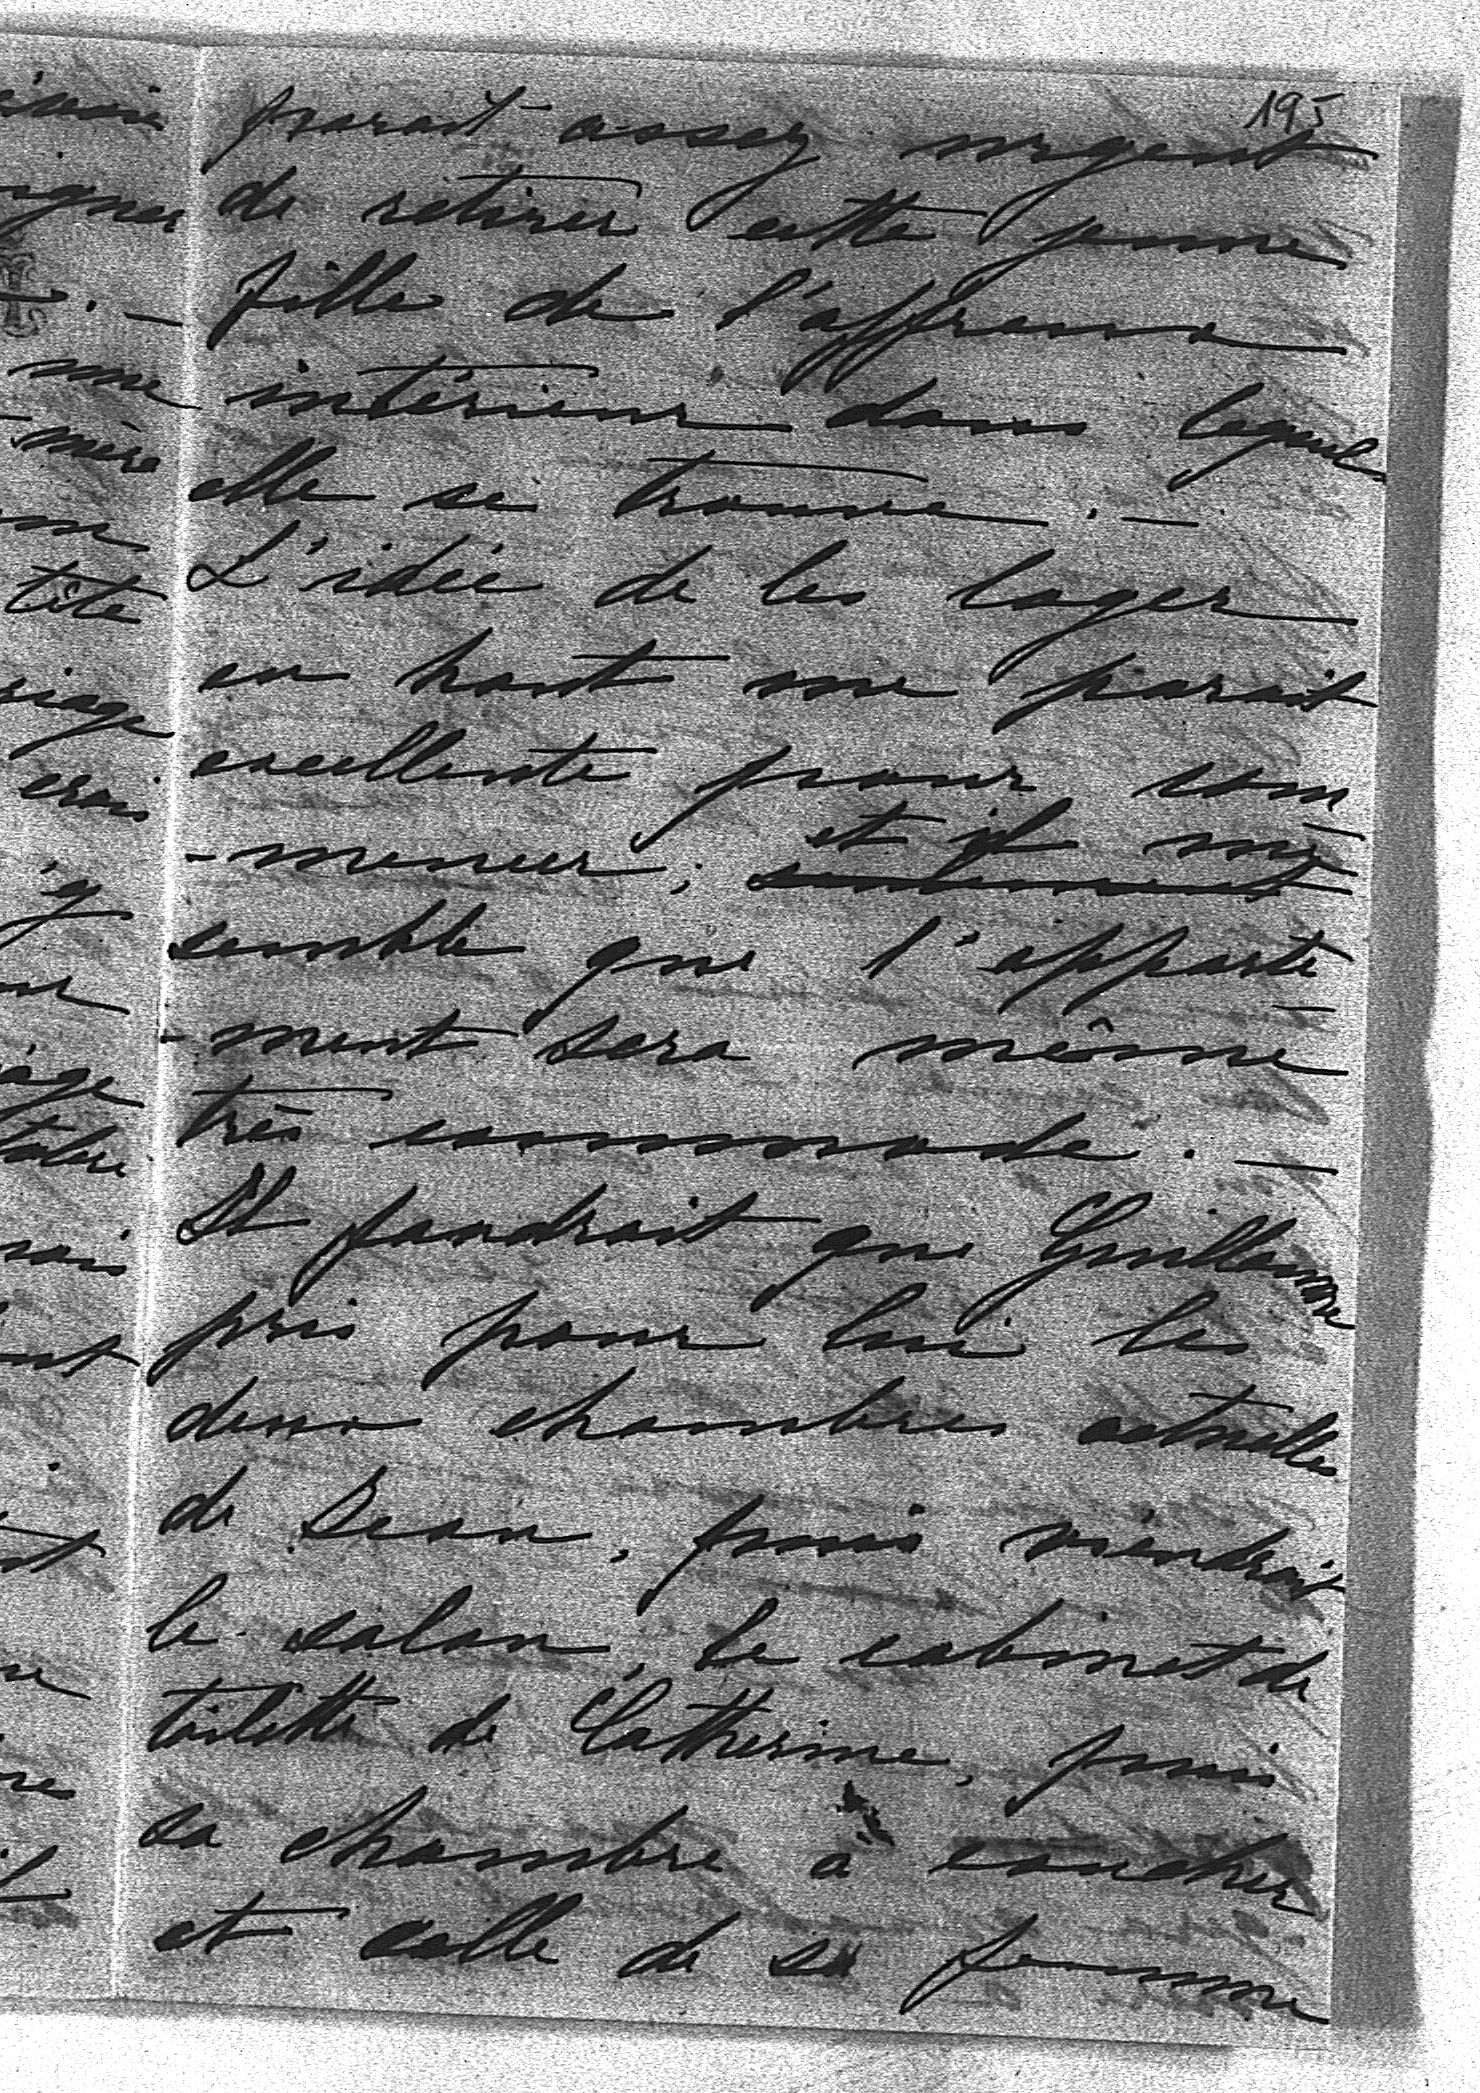 195
parait assez urgent
de retirer cette jeune
fille de l'affreux
intérieur dans lequel
elle se trouve. —
L'idée de les loger
en haut me parait
excellente pour com
et il me
-mencer ; seulement
semble que l'apparte
-ment sera même
très commode. —
Il faudrait que Guillaume
pris pour lui les
deux chambres actuelles
de Jean, puis viendrait
le salon, le cabinet de
toilette de Catherine, puis
sa chambre à coucher
et celle de sa femme
une
mère
tête
riage
crois
y